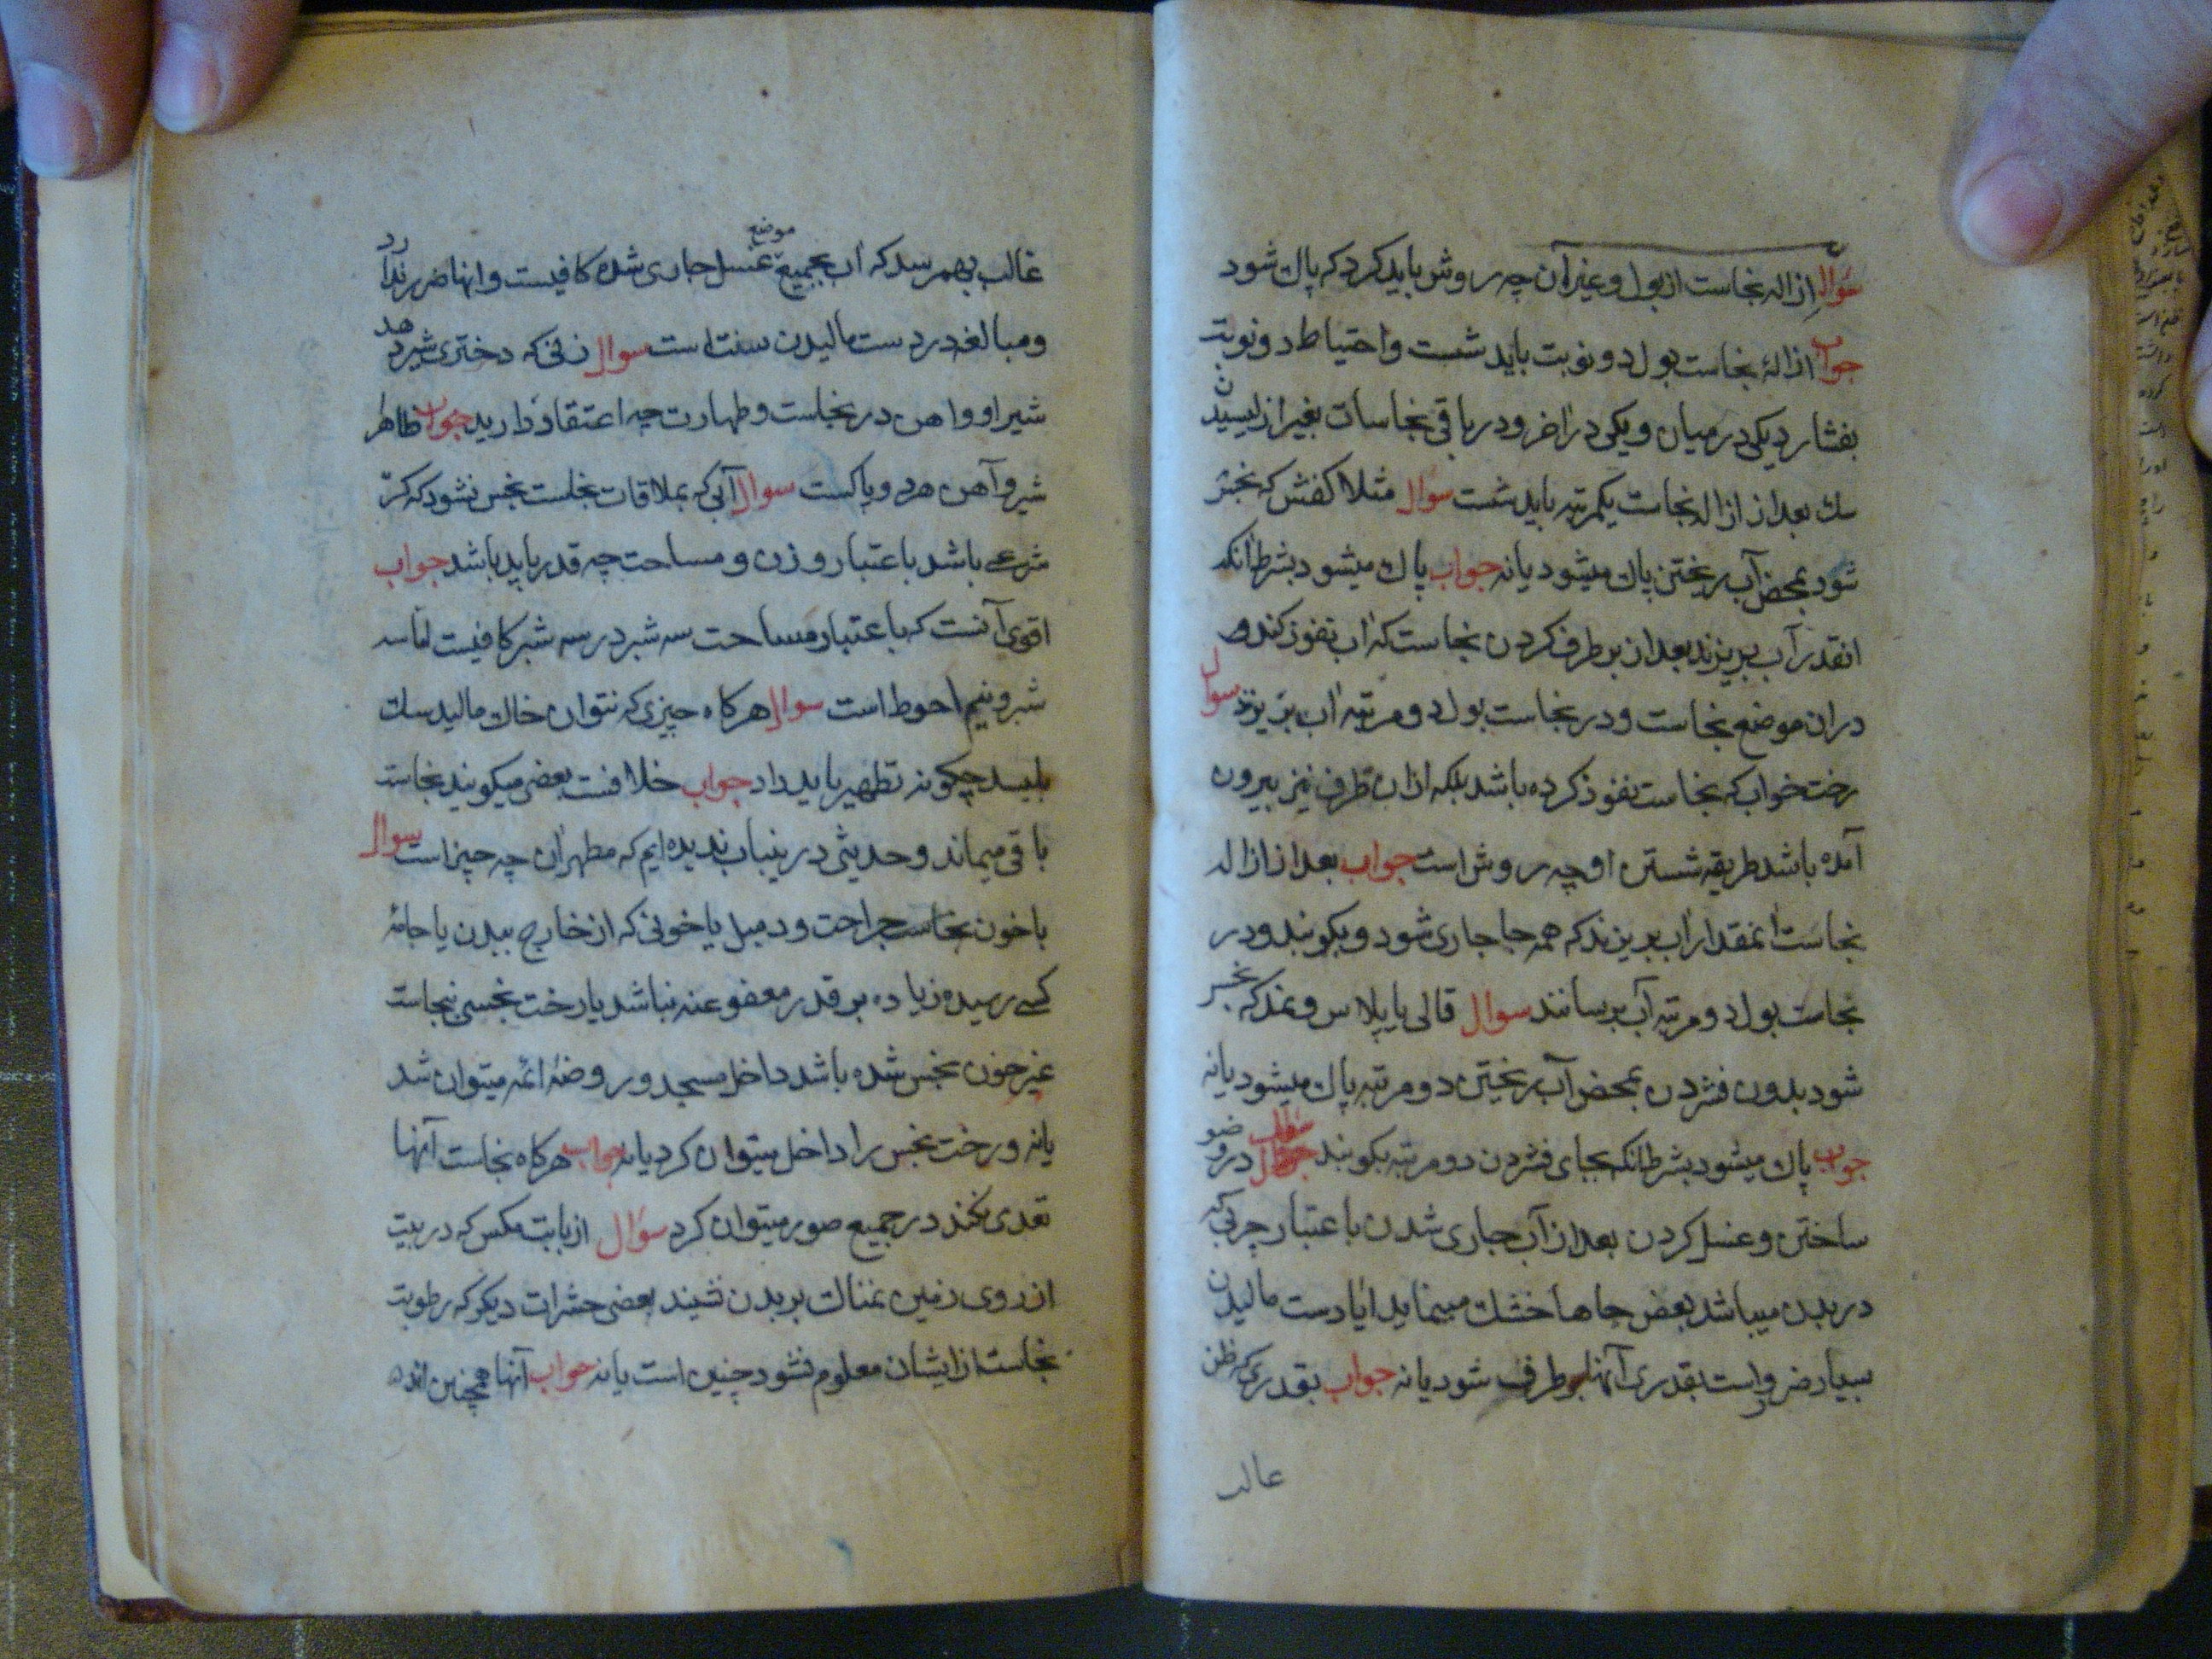 سؤال ازاله نجاست از بول و غیر آن چه روش باید کرد که پاك شود
جواب ازالۀ نجاست بول دو نوبت باید شست و احتیاط دو نوبت
بفشارد یکی در میان و یکی در اخر و در باقی نجاسات بغیر از لیسیدن
سك بعد از ازاله نجاست یکمرتبه باید شست سؤال مثلا کفش که نجس
شود بمحض آب ریختن پاك میشود یا نه جواب پاك میشود بشرط انکه
انقدر آب بریزند بعد از برطرف کردن نجاست که اب نفوذ کند
در ان موضع نجاست و در نجاست بول دو مرتبه اب بریزند سوال
رخت خواب که نجاست نفوذ کرده باشد بلکه از ان طرف نیز بیرون
آمده باشد طریقه شستن او چه روش است جواب بعد از ازاله
نجاست انمقدار اب بریزند که همه جا جاری شود و بکوبند و در
نجاست بول دو مرتبه آب برسانند سوال قالی یا پلاس و نمد که نجس
شود بدون فشردن بمحض آب ریختن دو مرتبه پاك میشود یا نه
جواب پاك میشود بشرط انکه بجای فشردن دو مرتبه بکوبند سؤال در وضو
ساختن و غسل کردن بعد از آب جاری شدن باعتبار چربی که
در بدن میباشد بعض جاها خشك مینماید ایا دست مالیدن
بسیار ضرور است بقدری آنها برطرف شود یا نه جواب بقدری که ظن
غالب
غالب بهم رسد که اب بجمیع موضع غسل جاری شده کافیست و انها ضرر ندارد
و مبالغه در دست مالیدن سنت است سوال زنی که دختری شیر دهد
شیر او و اهن در نجاست و طهارت چه اعتقاد دارید جواب ظاهر
شیر و آهن هر دو پاکست سوال آبی که بملاقات نجاست نجس نشود که کر
شرعی باشد باعتبار وزن و مساحت چه قدر باید باشد جواب
اقوی آنست که باعتبار مساحت سه شبر در سه شبر کافیست اما سه
شبر و نیم احوط است سوال هرکاه چیزی که نتوان خاك مالید سك
بلیسد چکونه تطهیر باید داد جواب خلافست بعضی میکویند نجاست
باقی میماند و حدیثی در ینباب ندیده ایم که مطهر ان چه چیز است سوال
با خون نجاست جراحت و دمبل یا خونی که از خارج ببدن یا جامۀ
کسی رسیده زیاده بر قدر معفو عنه نباشد یا رخت نجسی بنجاست
غیر خون نجس شده باشد داخل مسجد و روضۀ ائمه میتوان شد
یا نه و رخت نجس را داخل میتوان کرد یا نه جواب هرکاه نجاست آنها
تعدی نکند در جمیع صور میتوان کرد سؤال از بابت مکس که در بیت
از روی زمین نمناك بر بدن نشیند بعضی حشرات دیکر که رطوبت
نجاست از ایشان معلوم نشود چنین است یا نه جواب آنها همچنین اند